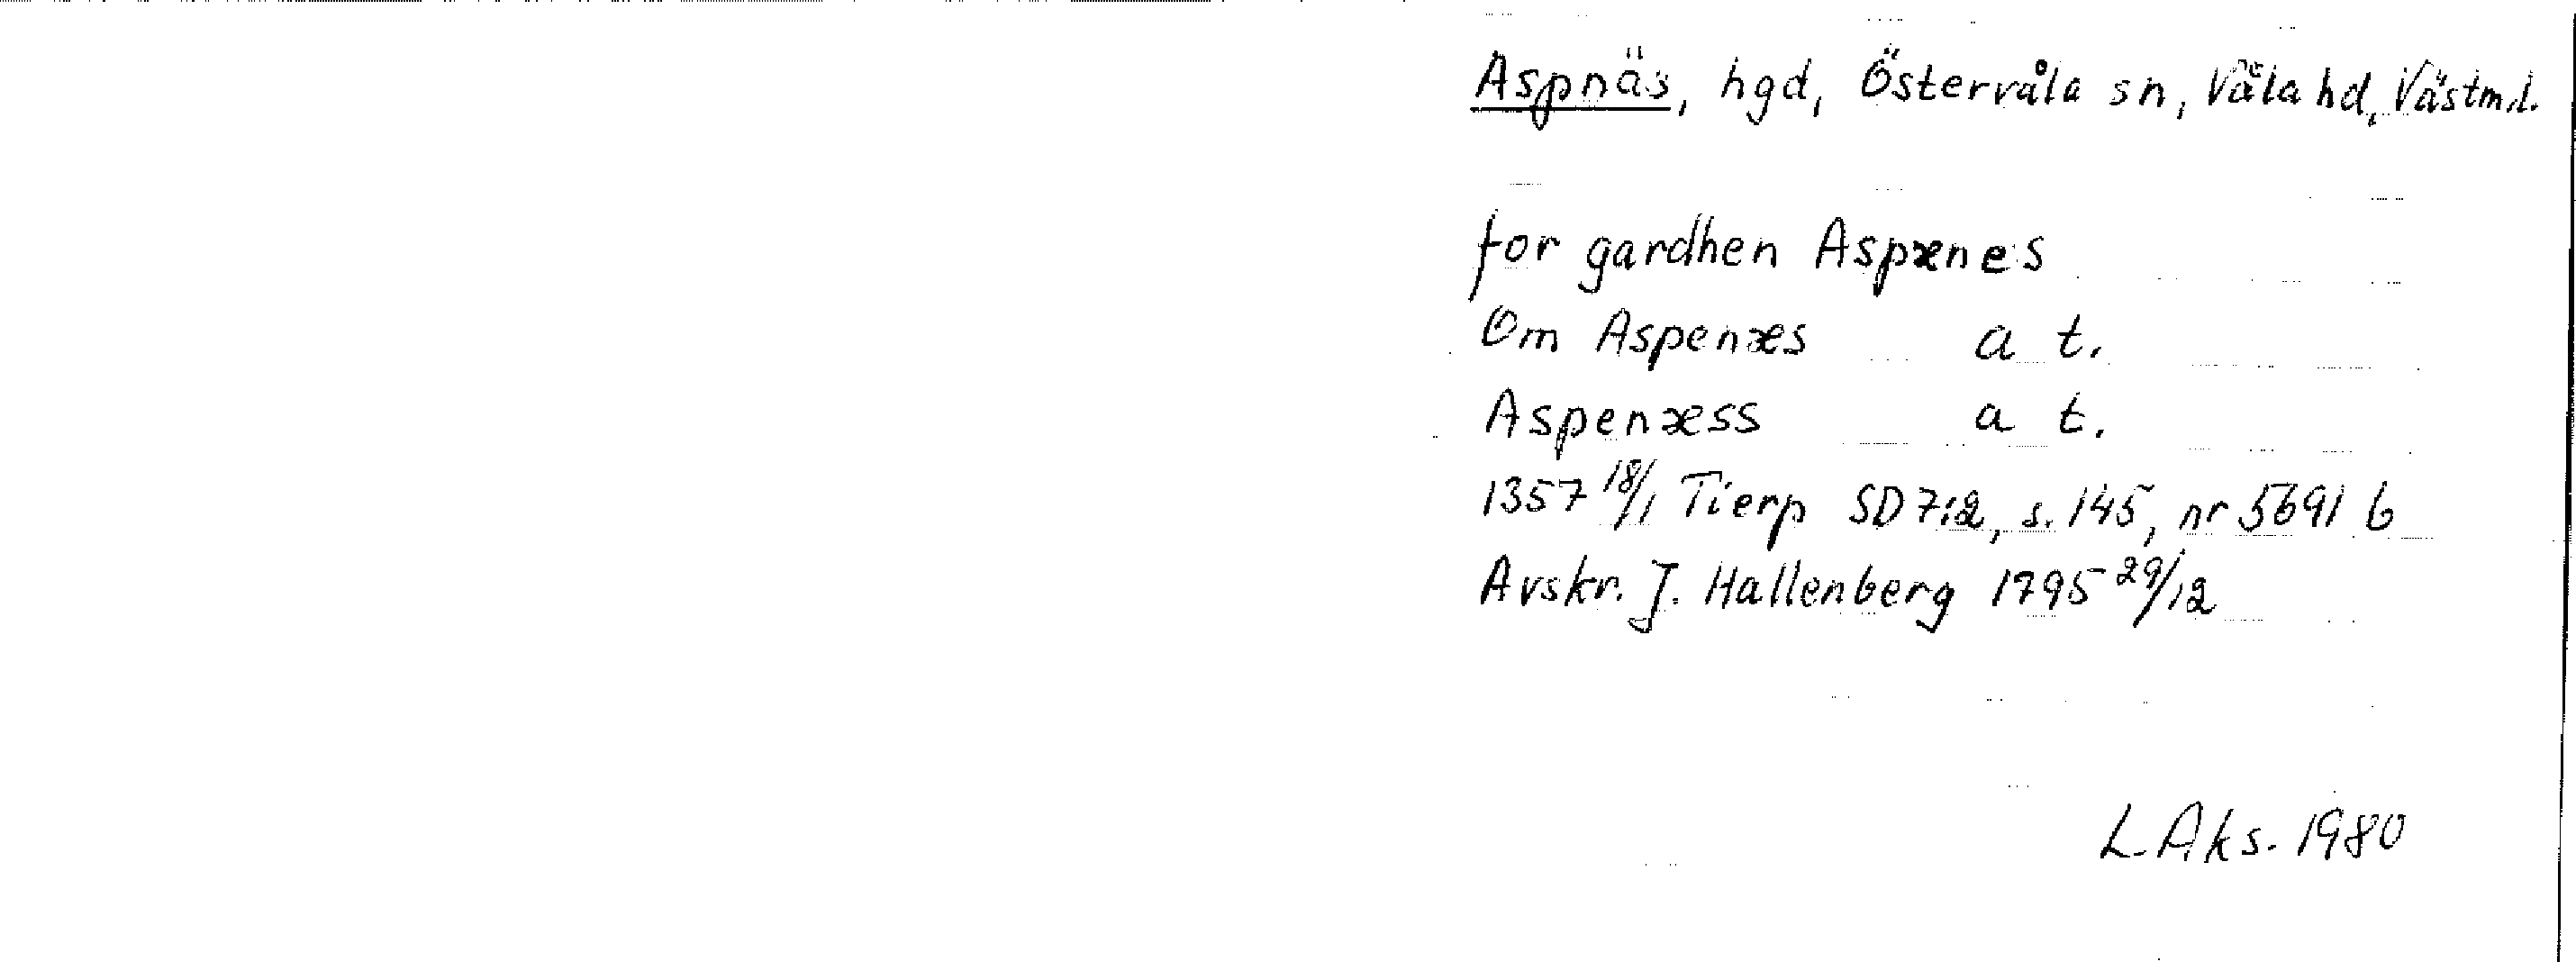 Aspnäs, hgd, Östervåla sn, Våla hd, Västml.
for gardhen Aspænes
Om Aspenæs a t.
Aspenæss a t.
1357 18/1 Tierp SD 7:2, s. 145, nr 5691 b
Avskr. J. Hallenberg 1795 29/12
L Aks. 1980